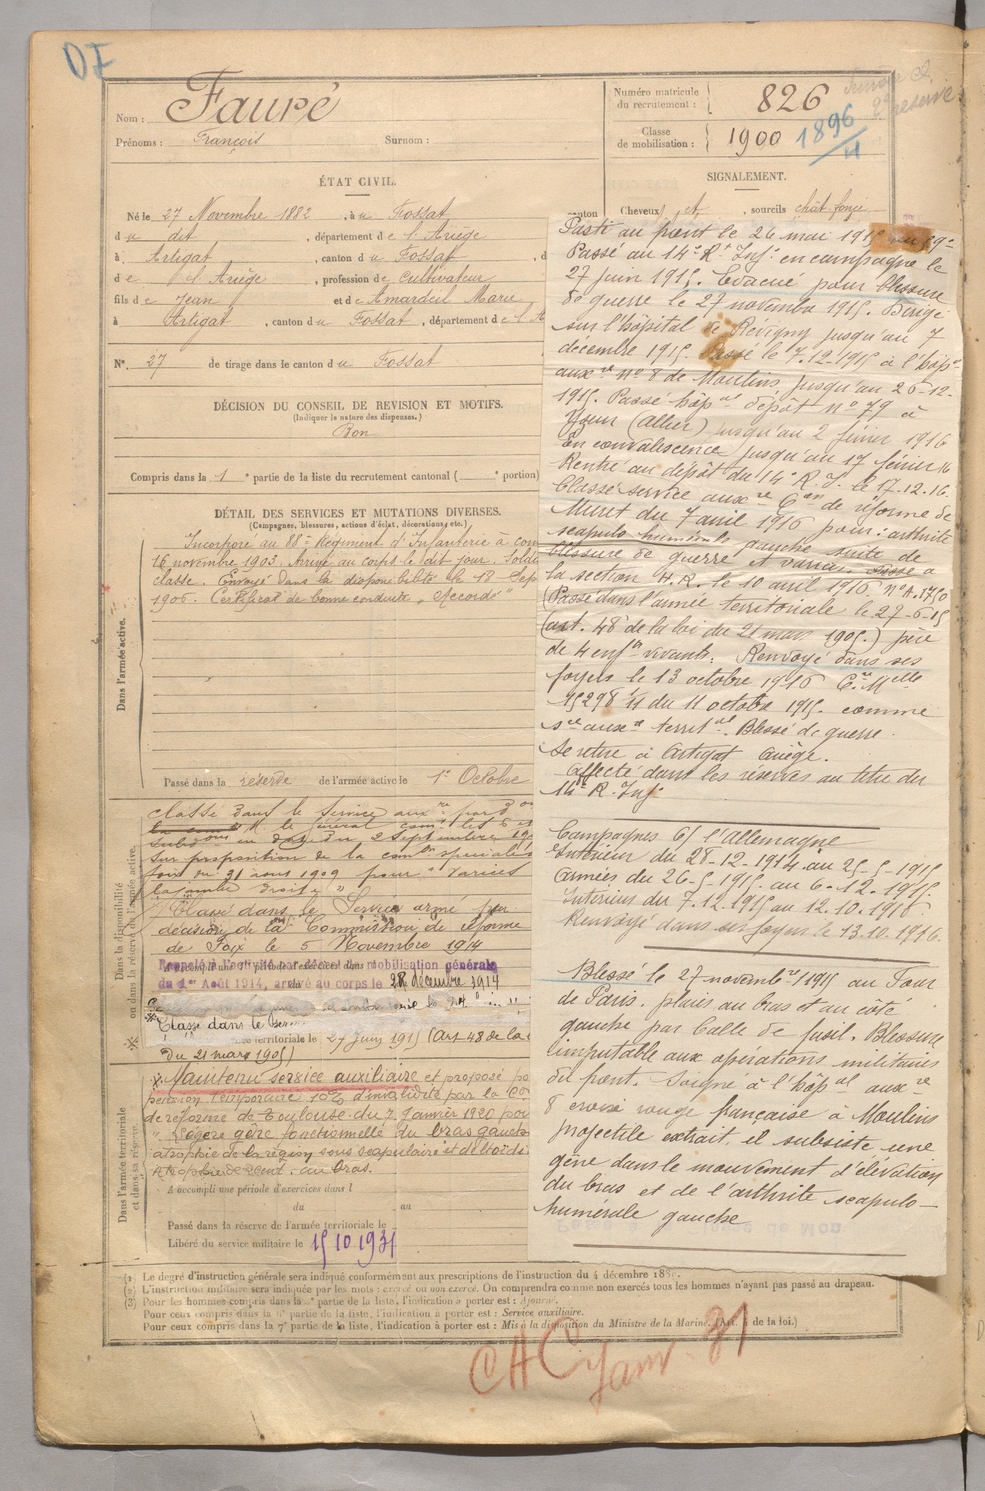 OF
Nom : Fauré
Prénoms : François Surnom :
Numéro matricule du recrutement : 826
Classe de mobilisation : 1900 1896
réserve
ÉTAT CIVIL.
Né le 27 Novembre 1882, à u Fossat
du dit, département de l'Ariège
à Artigat, canton du Fossat
de l'Ariège, profession de cultivateur
fils de Jean et de Amardeil Marie
à Artigat, canton du Fossat, département de l'A
N° 27 de tirage dans le canton du Fossat
SIGNALEMENT.
canton
Cheveux et sourcils chât foncé
DÉCISION DU CONSEIL DE REVISION ET MOTIFS.
(Indiquer la nature des dispenses.)
Bon
Compris dans la 1e partie de la liste du recrutement cantonal ( portion)
DÉTAIL DES SERVICES ET MUTATIONS DIVERSES.
(Campagnes, blessures, actions d'éclat, décorations, etc.)
Dans l'armée active.
Incorporé au 88e Régiment d'Infanterie à com
16 novembre 1903. Arrivé au corps le dit jour. Soldat
classe. Envoyé dans la disponibilité le 18 Sep
1906. Certificat de bonne conduite "Accordé"
Passé dans la réserve de l'armée active le 1er Octobre
Dans la disponibilité ou dans la réserve de l'armée active.
classé dans le service auxre par
M le général comt les
subdons en date du 2 septembre 19
sur proposition de la comon spéciale
Foix du 31 août 1909 pour "varices
la jambe droite"
Classé dans le Service armé par
décision de la Commission de réforme
de Foix le 5 Novembre 1914
Rappelé à l'activité par décret de mobilisation générale
du 1er Août 1914, arrivé au corps le 28 décembre 1914
Classé dans le Serv
territoriale le 27 juin 1915 (Art 48 de la
du 21 mars 1905)
Dans l'armée territoriale et dans sa réserve.
Maintenu service auxiliaire et proposé po
pension temporaire 10% d'invalidité par la Co
de réforme de Toulouse du 7 Janvier 1920 pou
"Légère gêne fonctionnelle du bras gauche
atrophie de la région sous scapulaire et deltoïdi
atrophie de cent. au bras.
A accompli une période d'exercices dans l
du au
Passé dans la réserve de l'armée territoriale le
Libéré du service militaire le 15 10 1931
Parti au front le 26 mai 1915 au 59e
Passé au 14e Rt Infie en campagne le
27 juin 1915. Évacué pour blessure
de guerre le 27 novembre 1915. Dirigé
sur l'hôpital de Révigny jusqu'au 7
décembre 1915. Passé le 7.12.1915 à l'hôpal
auxre N° 8 de Moulins jusqu'au 26-12-
1915. Passé hôpal dépôt n° 79 à
Yzeur (Allier) jusqu'au 2 février 1916
En convalescence jusqu'au 17 février 16
Rentré au dépôt du 14e R.I. le 17.12.16.
Classé service auxre Con de réforme de
Muret du 7 avril 1916 pour : arthrite
scapulo humérale gauche suite de
blessure de guerre et varices. Passé à
la section H.R. le 10 avril 1916. N° A.1750
(Passé dans l'armée territoriale le 27-6-15
(art. 48 de la loi du 21 mars 1905.) père
de 4 enfts vivants. Renvoyé dans ses
foyers le 13 octobre 1916 Cre Mlle
15298 1/11 du 11 octobre 1915. comme
sce auxre territal. Blessé de guerre.
Se retire à Artigat Ariège.
Affecté dans les réserves au titre du
14e R. Infie
Campagnes C/ l'Allemagne
Intérieur du 28-12-1914 au 25-5-1915
Armées du 26-5-1915. au 6-12-1915.
Intérieur du 7.12.1915 au 12.10.1916
Renvoyé dans ses foyers le 13.10.1916.
Blessé le 27 novembre 1915 au Four
de Paris. plaies au bras et au côté
gauche par balle de fusil. Blessure
imputable aux opérations militaires
du front. Soigné à l'hôpal auxre
8 croix rouge française à Moulins
projectile extrait, il subsiste une
gêne dans le mouvement d'élévation
du bras et de l'arthrite scapulo-
humérale gauche
Le degré d'instruction générale sera indiqué conformément aux prescriptions de l'instruction du 4 décembre 188
L'instruction militaire sera indiquée par les mots : exercé ou non exercé. On comprendra comme non exercés tous les hommes n'ayant pas passé au drapeau.
Pour les hommes compris dans la partie de la liste, l'indication à porter est : Ajourné.
Pour ceux compris dans la 6e partie de la liste, l'indication à porter est : Service auxiliaire.
Pour ceux compris dans la 7e partie de la liste, l'indication à porter est : Mis à la disposition du Ministre de la Marine. (Art. 4 de la loi.)
CHC Janv. 31